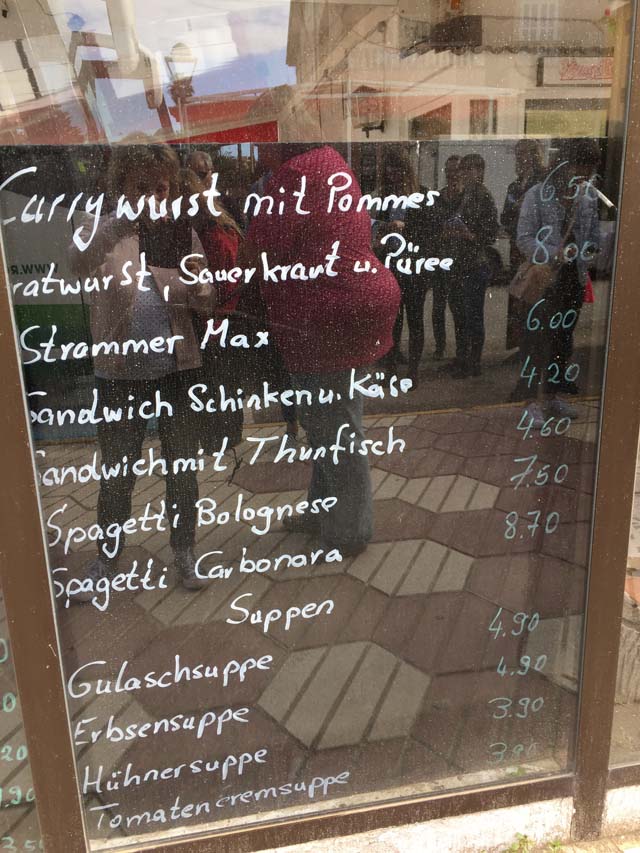 Currywurst mit Pommes 6.50
ratwurst, Sauerkraut u. Püree 8.00
Strammer Max 6.00
Sandwich Schinken u. Käse 4.20
Sandwich mit Thunfisch 4.60
Spagetti Bolognese 7.50
Spagetti Carbonara 8.70
Suppen
Gulaschsuppe 4.90
Erbsensuppe 4.90
Hühnersuppe 3.90
Tomatencremsuppe 3.90